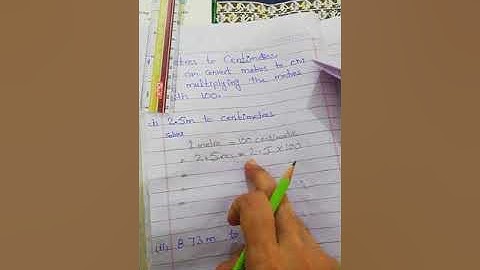 Metres to Centimetres
can convert metres to cm
multiplying the metres
with 100.
(i) 2.5m to centimetres
Solution
1 metre = 100 centimetre
= 2.5m = 2.5 x 100
=
=
(ii) 8.73m to